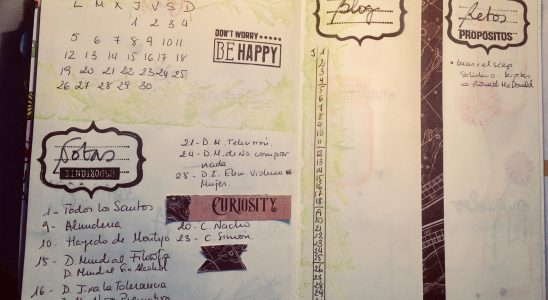 L M X J V S D
1 2 3 4
5 6 7 8 9 10 11
12 13 14 15 16 17 18
19 20 21 22 23 24 25
26 27 28 29 30.
DON'T WORRY.....
BE HAPPY
Notas
IMPORTANTE
1 - Todos los Santos
9 - Almudena
10. Hayedo de Montejo
15 - D. Mundial Filosofía
D. Mundial Sin Alcohol
16 - D. Tolerancia
21 - D. M. Televisión.
24 - D. M. de No comprar
nada
25 - D. I. Elim. Violencia
Mujer.
CURIOSITY
20 - C. Nacho
23 - C. Simón.
Blog
J
1
2
3
4
5
6
7
8
9
10
11
12
13
14
15
16
17
18
19
20
21
22
23
24
Retos
PROPÓSITOS
Solidario
Ronald McDonald